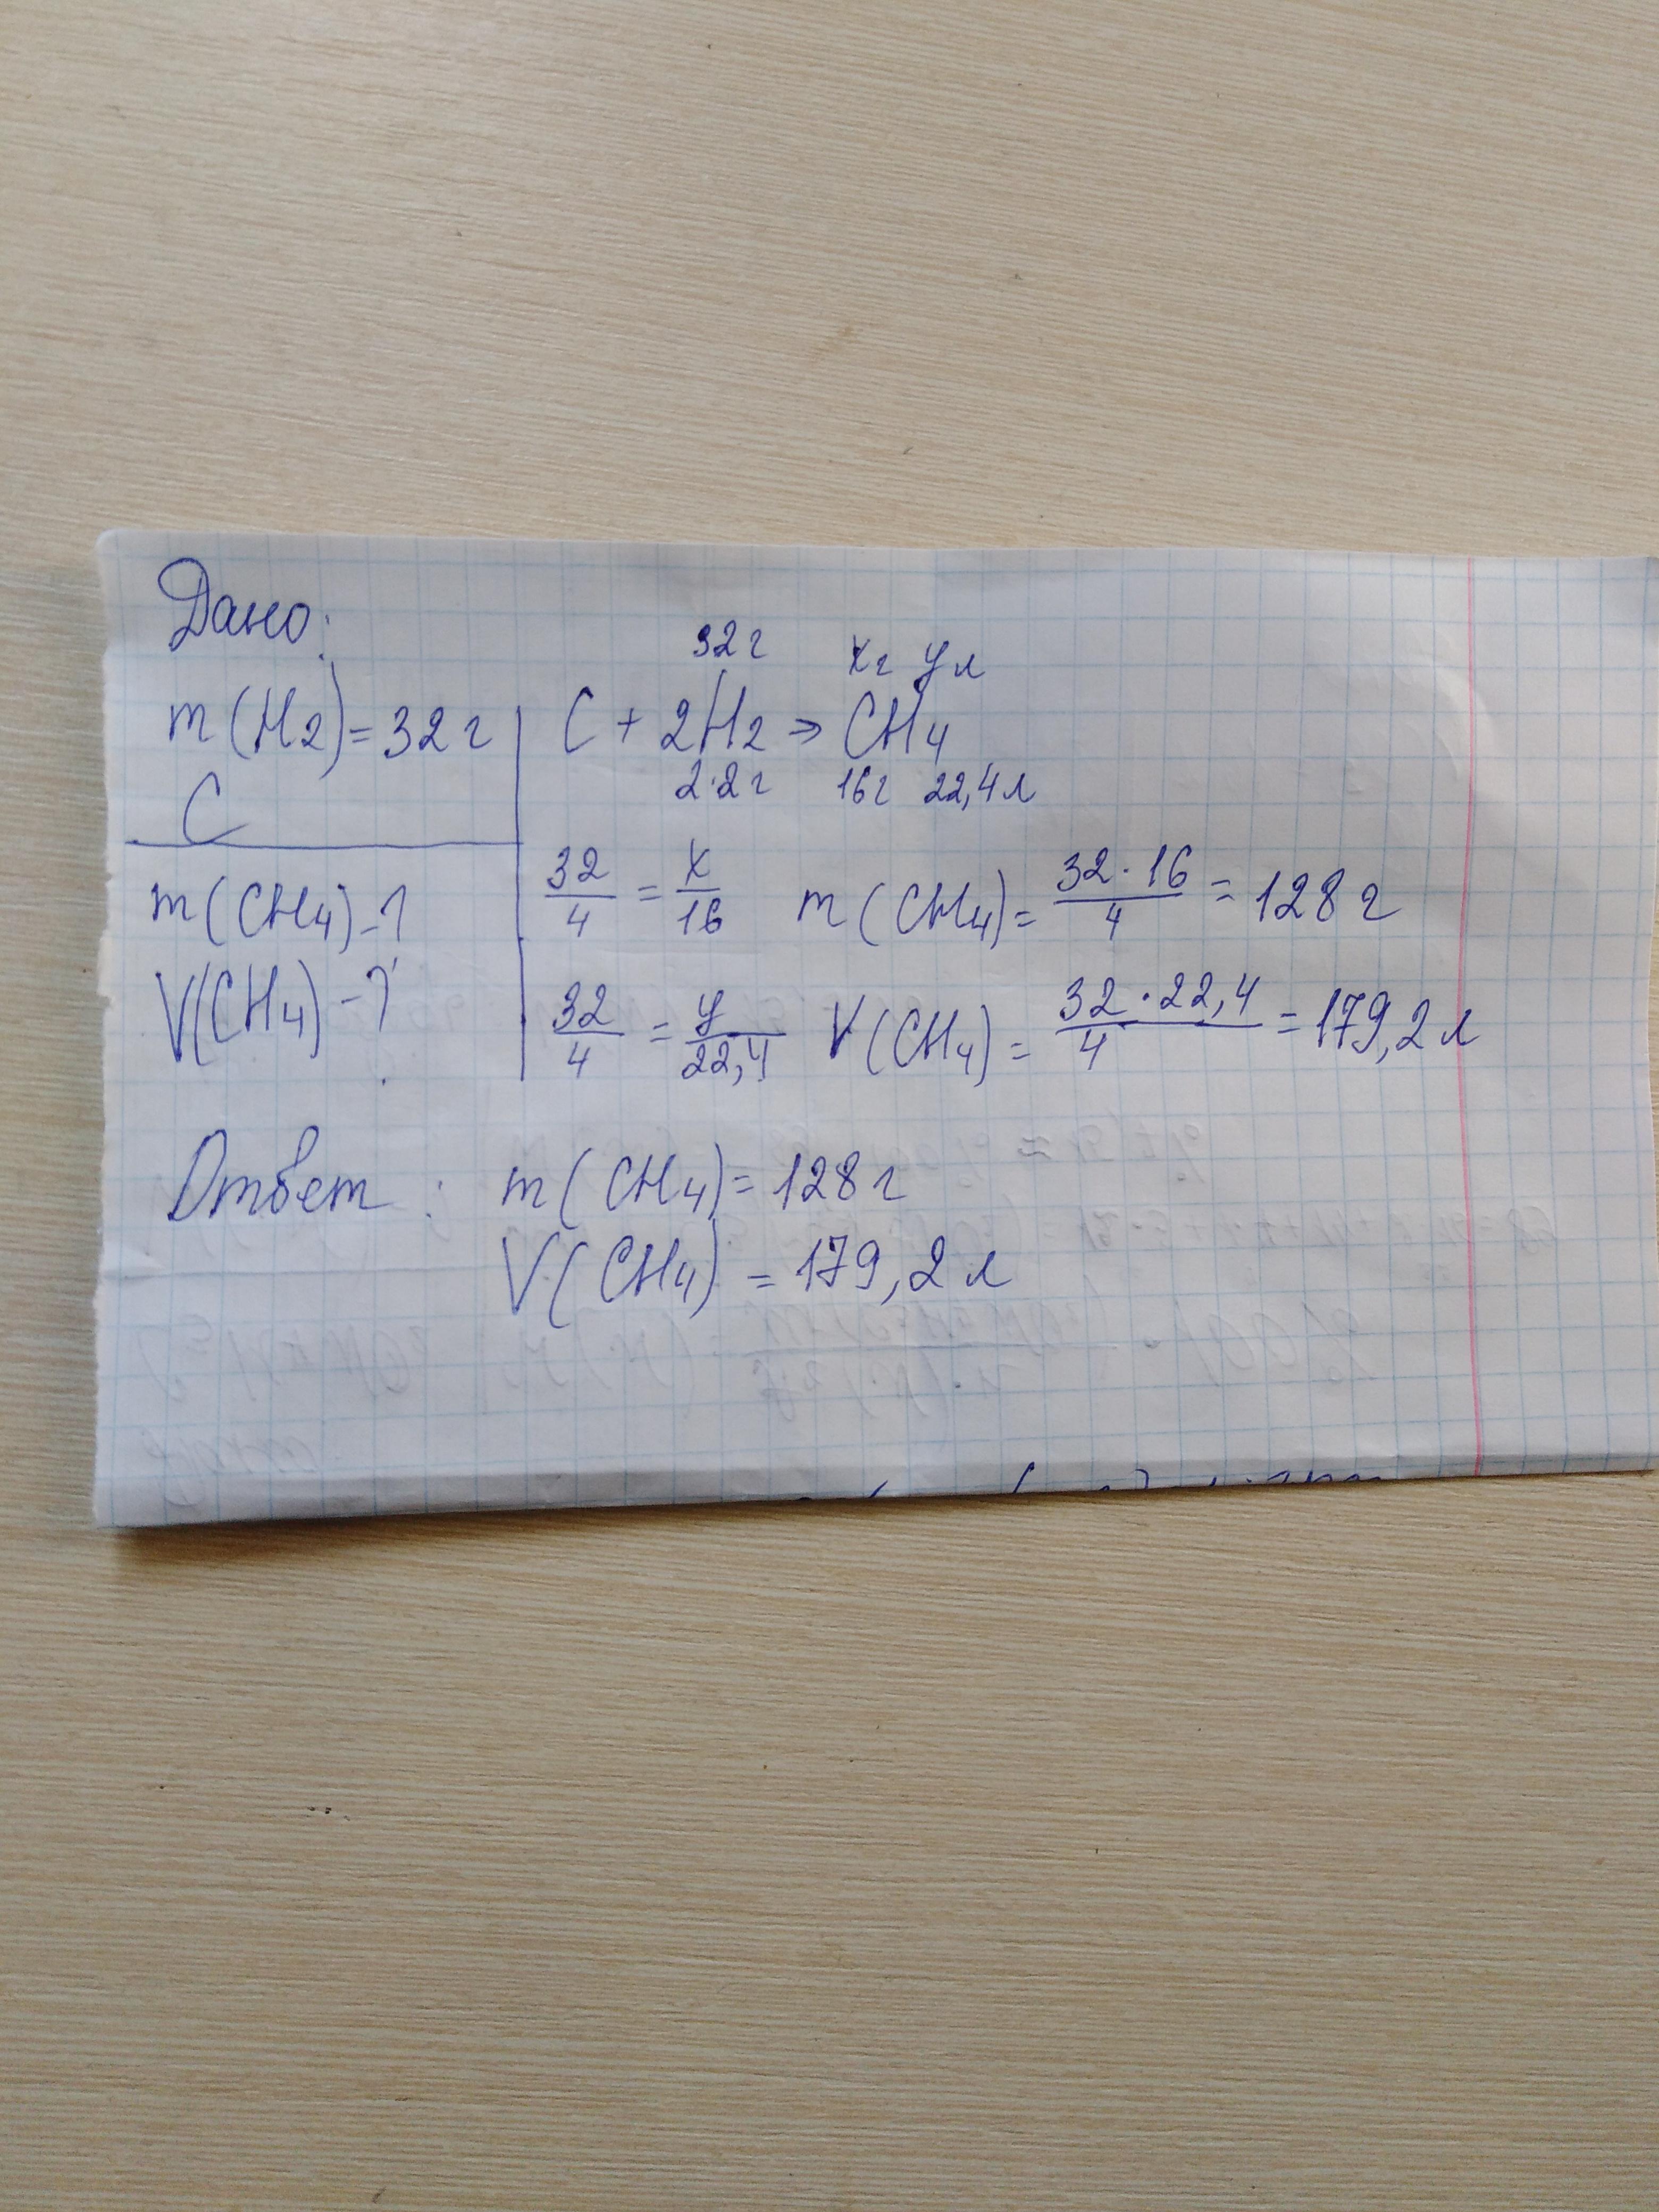 Дано:
m(H2)=32г
C
m(CH4)-?
V(CH4)-?
32г xг yл
C + 2H2 → CH4
2·2г 16г 22,4л
32/4 = x/16 m(CH4)= 32·16/4 = 128г
32/4 = y/22,4 V(CH4)= 32·22,4/4 = 179,2л
Ответ: m(CH4)=128г
V(CH4)=179,2л